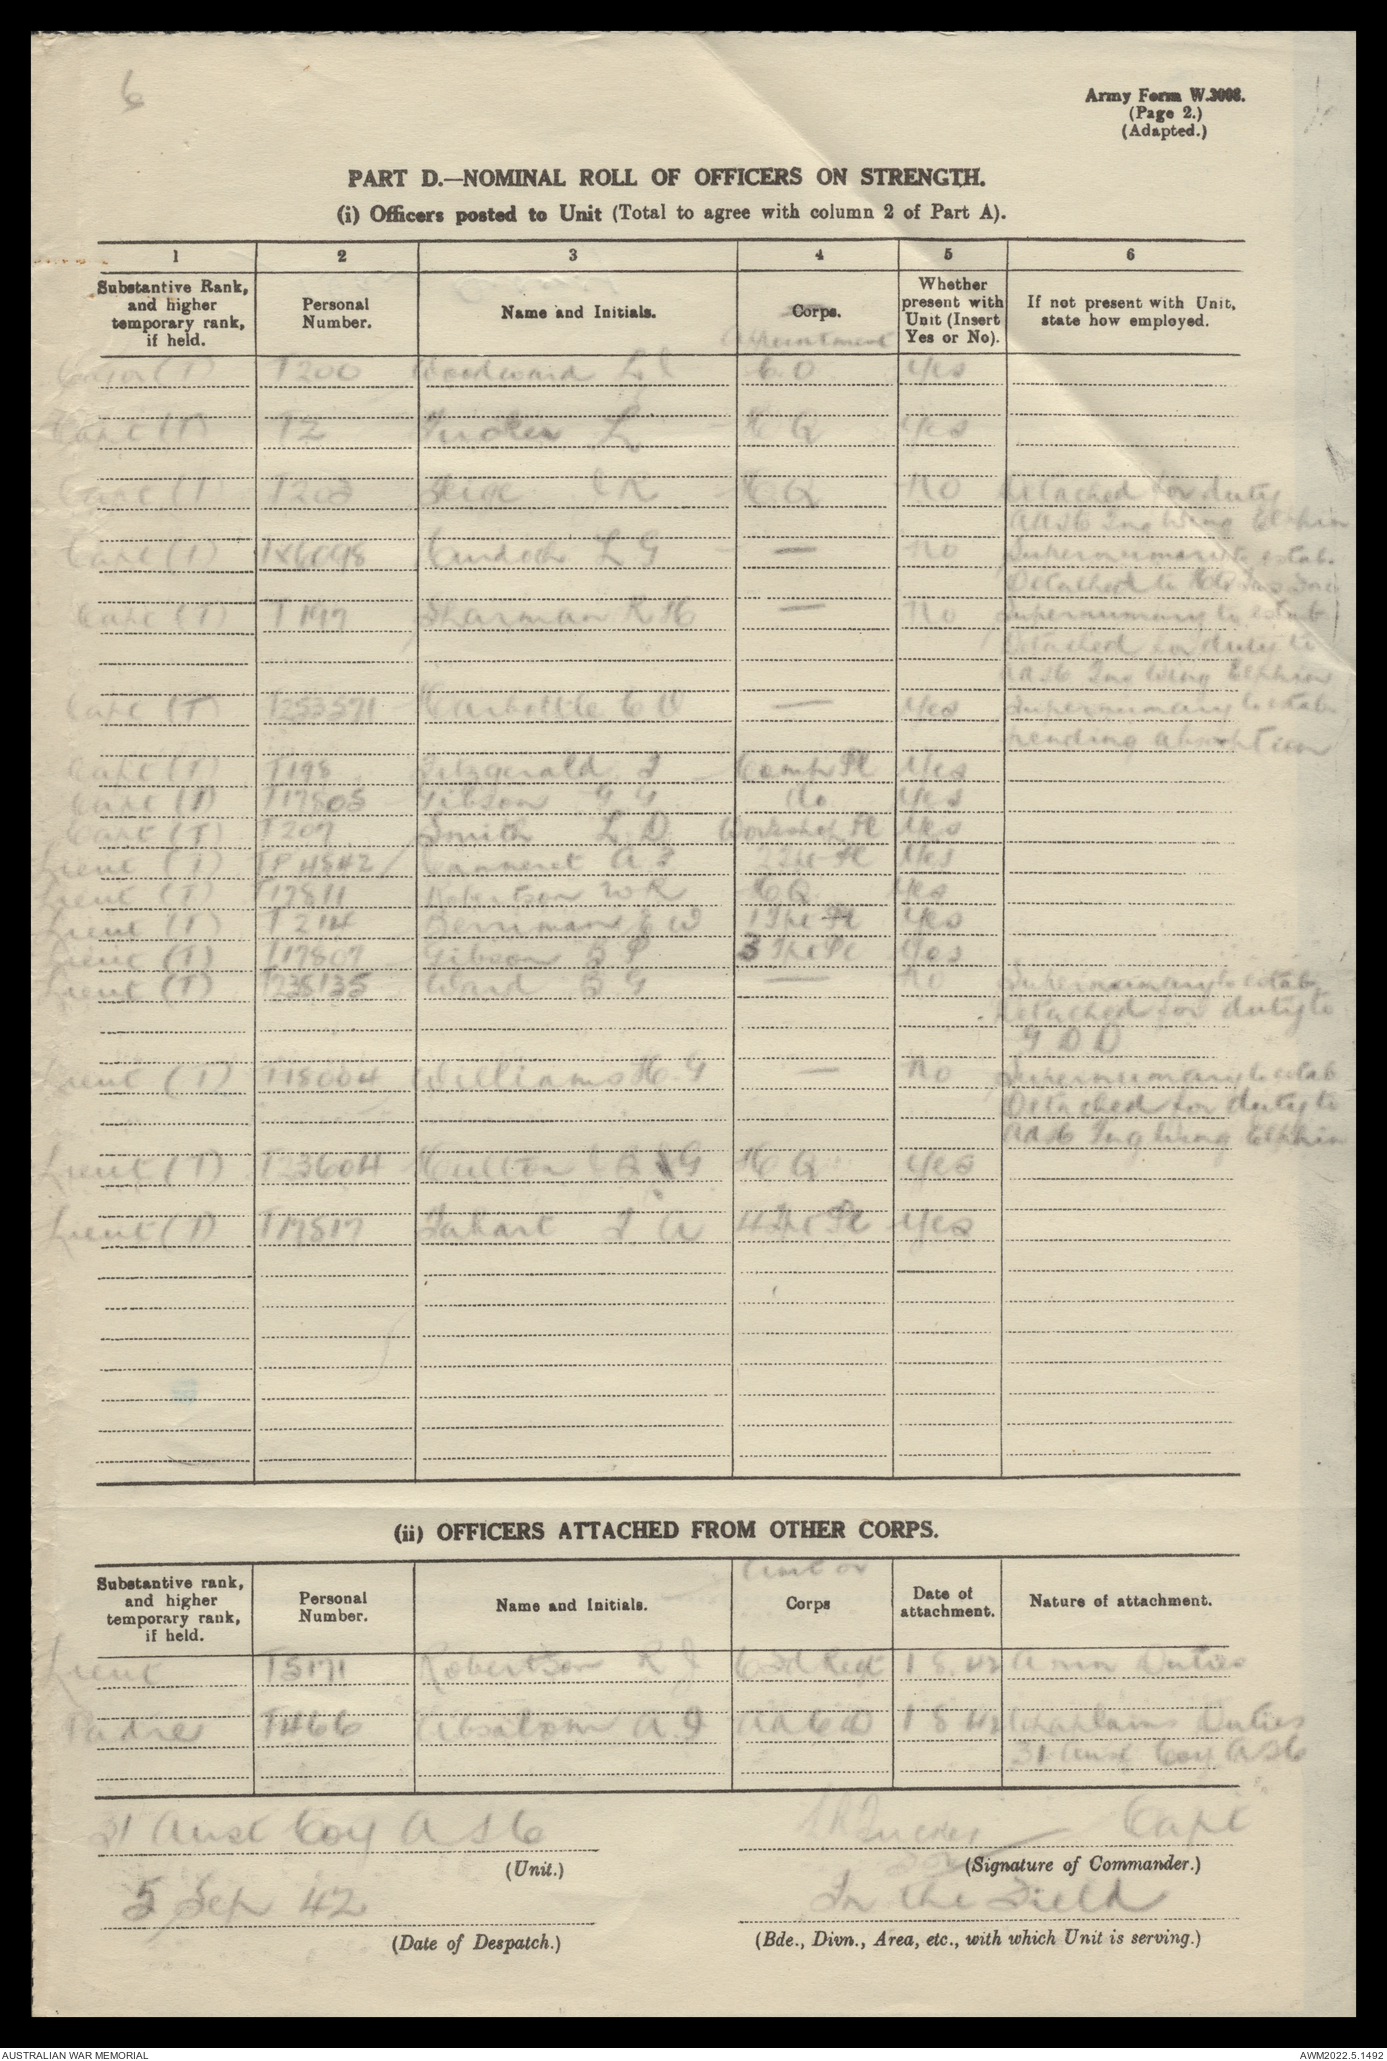 6
Army Form W.3008.
(Page 2.)
(Adapted.)
PART D.—NOMINAL ROLL OF OFFICERS ON STRENGTH.
(i) Officers posted to Unit (Total to agree with column 2 of Part A).
1 2 3 4 5 6
Substantive Rank, and higher temporary rank, if held.
Personal Number.
Name and Initials.
Corps.
Appointment
Whether present with Unit (Insert Yes or No).
If not present with Unit, state how employed.
Major (T) T200 Woodward L C.O Yes
Capt (T) T2 Tucker L H Q Yes
Capt (T T203 H Q No Detached for duty
AASC Tng Wing Elphin
Capt (T) TX6098 L G — No Supernumary to estab.
Detached to
Capt (T) Sharman R H — No Supernumary to estab
Detached for duty to
AASC Tng Wing Elphin
Capt (T) Harbottle C — Yes Supernumary to estab
pending absorption
Capt (T) T198 Fitzgerald J Comp Pl Yes
Capt (T) T17505 Gibson G G Do Yes
Capt (T) T209 Smith L D Workshop Pl Yes
Lieut (T) TP4542 A Pl Yes
Lieut (T) T17511 Robertson W R H Q Yes
Lieut (T) T214 Berriman E W 1 Tpt Pl Yes
Lieut (T) T17507 Gibson B P 3 Tpt Pl Yes
Lieut (T) T235135 Ward B G — No Supernumary to estab
Detached for duty to
G D D
Lieut (T) T15004 Williams H. G — No Supernumary to estab
Detached for duty to
AASC Tng Wing Elphin
Lieut (T) T23604 G H Q Yes
Lieut (T) T17517 A 4 Tpt Pl Yes
(ii) OFFICERS ATTACHED FROM OTHER CORPS.
Substantive rank, and higher temporary rank, if held.
Personal Number.
Name and Initials.
Unit or
Corps
Date of attachment.
Nature of attachment.
Lieut T5171 Robertson R J Regt 1 8 42 Duties
Padre T466 Absalom A. AACD 1 8 42 Chaplains Duties
31 Aust Coy ASC
31 Aust Coy A S C Tucker Capt
(Unit.) (Signature of Commander.)
5 Sep 42 In the Field
(Date of Despatch.) (Bde., Divn., Area, etc., with which Unit is serving.)
AUSTRALIAN WAR MEMORIAL AWM2022.5.1492